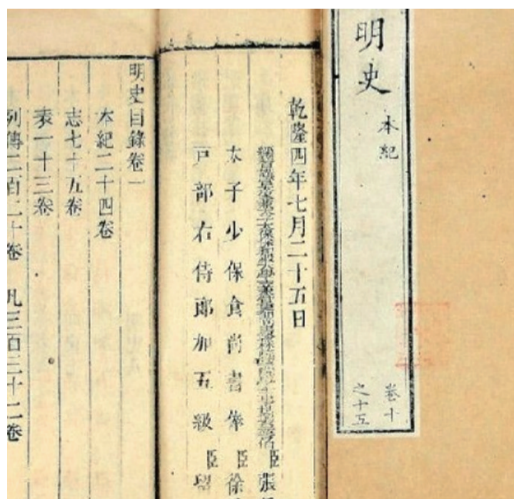 明史
本紀
卷十
之十五
乾隆四年七月二十五日
臣張
太子少保食尚書俸臣徐
戶部右侍郎加五級臣留
明史目錄卷一
本紀二十四卷
志七十五卷
表一十三卷
列傳二百二十卷 凡三百三十二卷